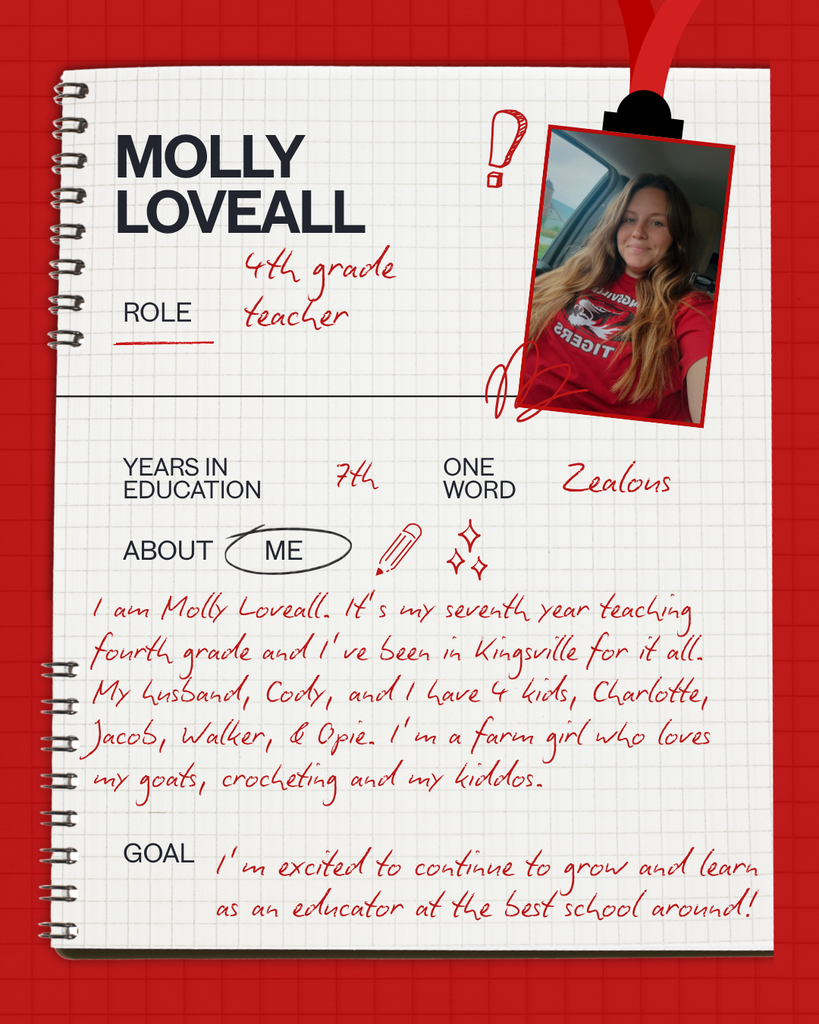 MOLLY
LOVEALL
ROLE
4th grade
teacher
KINGSVILLE
TIGERS
YEARS IN
EDUCATION
7th
ONE
WORD
Zealous
ABOUT ME
I am Molly Loveall. It's my seventh year teaching
fourth grade and I've been in Kingsville for it all.
My husband, Cody, and I have 4 kids, Charlotte,
Jacob, Walker, & Opie. I'm a farm girl who loves
my goats, crocheting and my kiddos.
GOAL
I'm excited to continue to grow and learn
as an educator at the best school around!